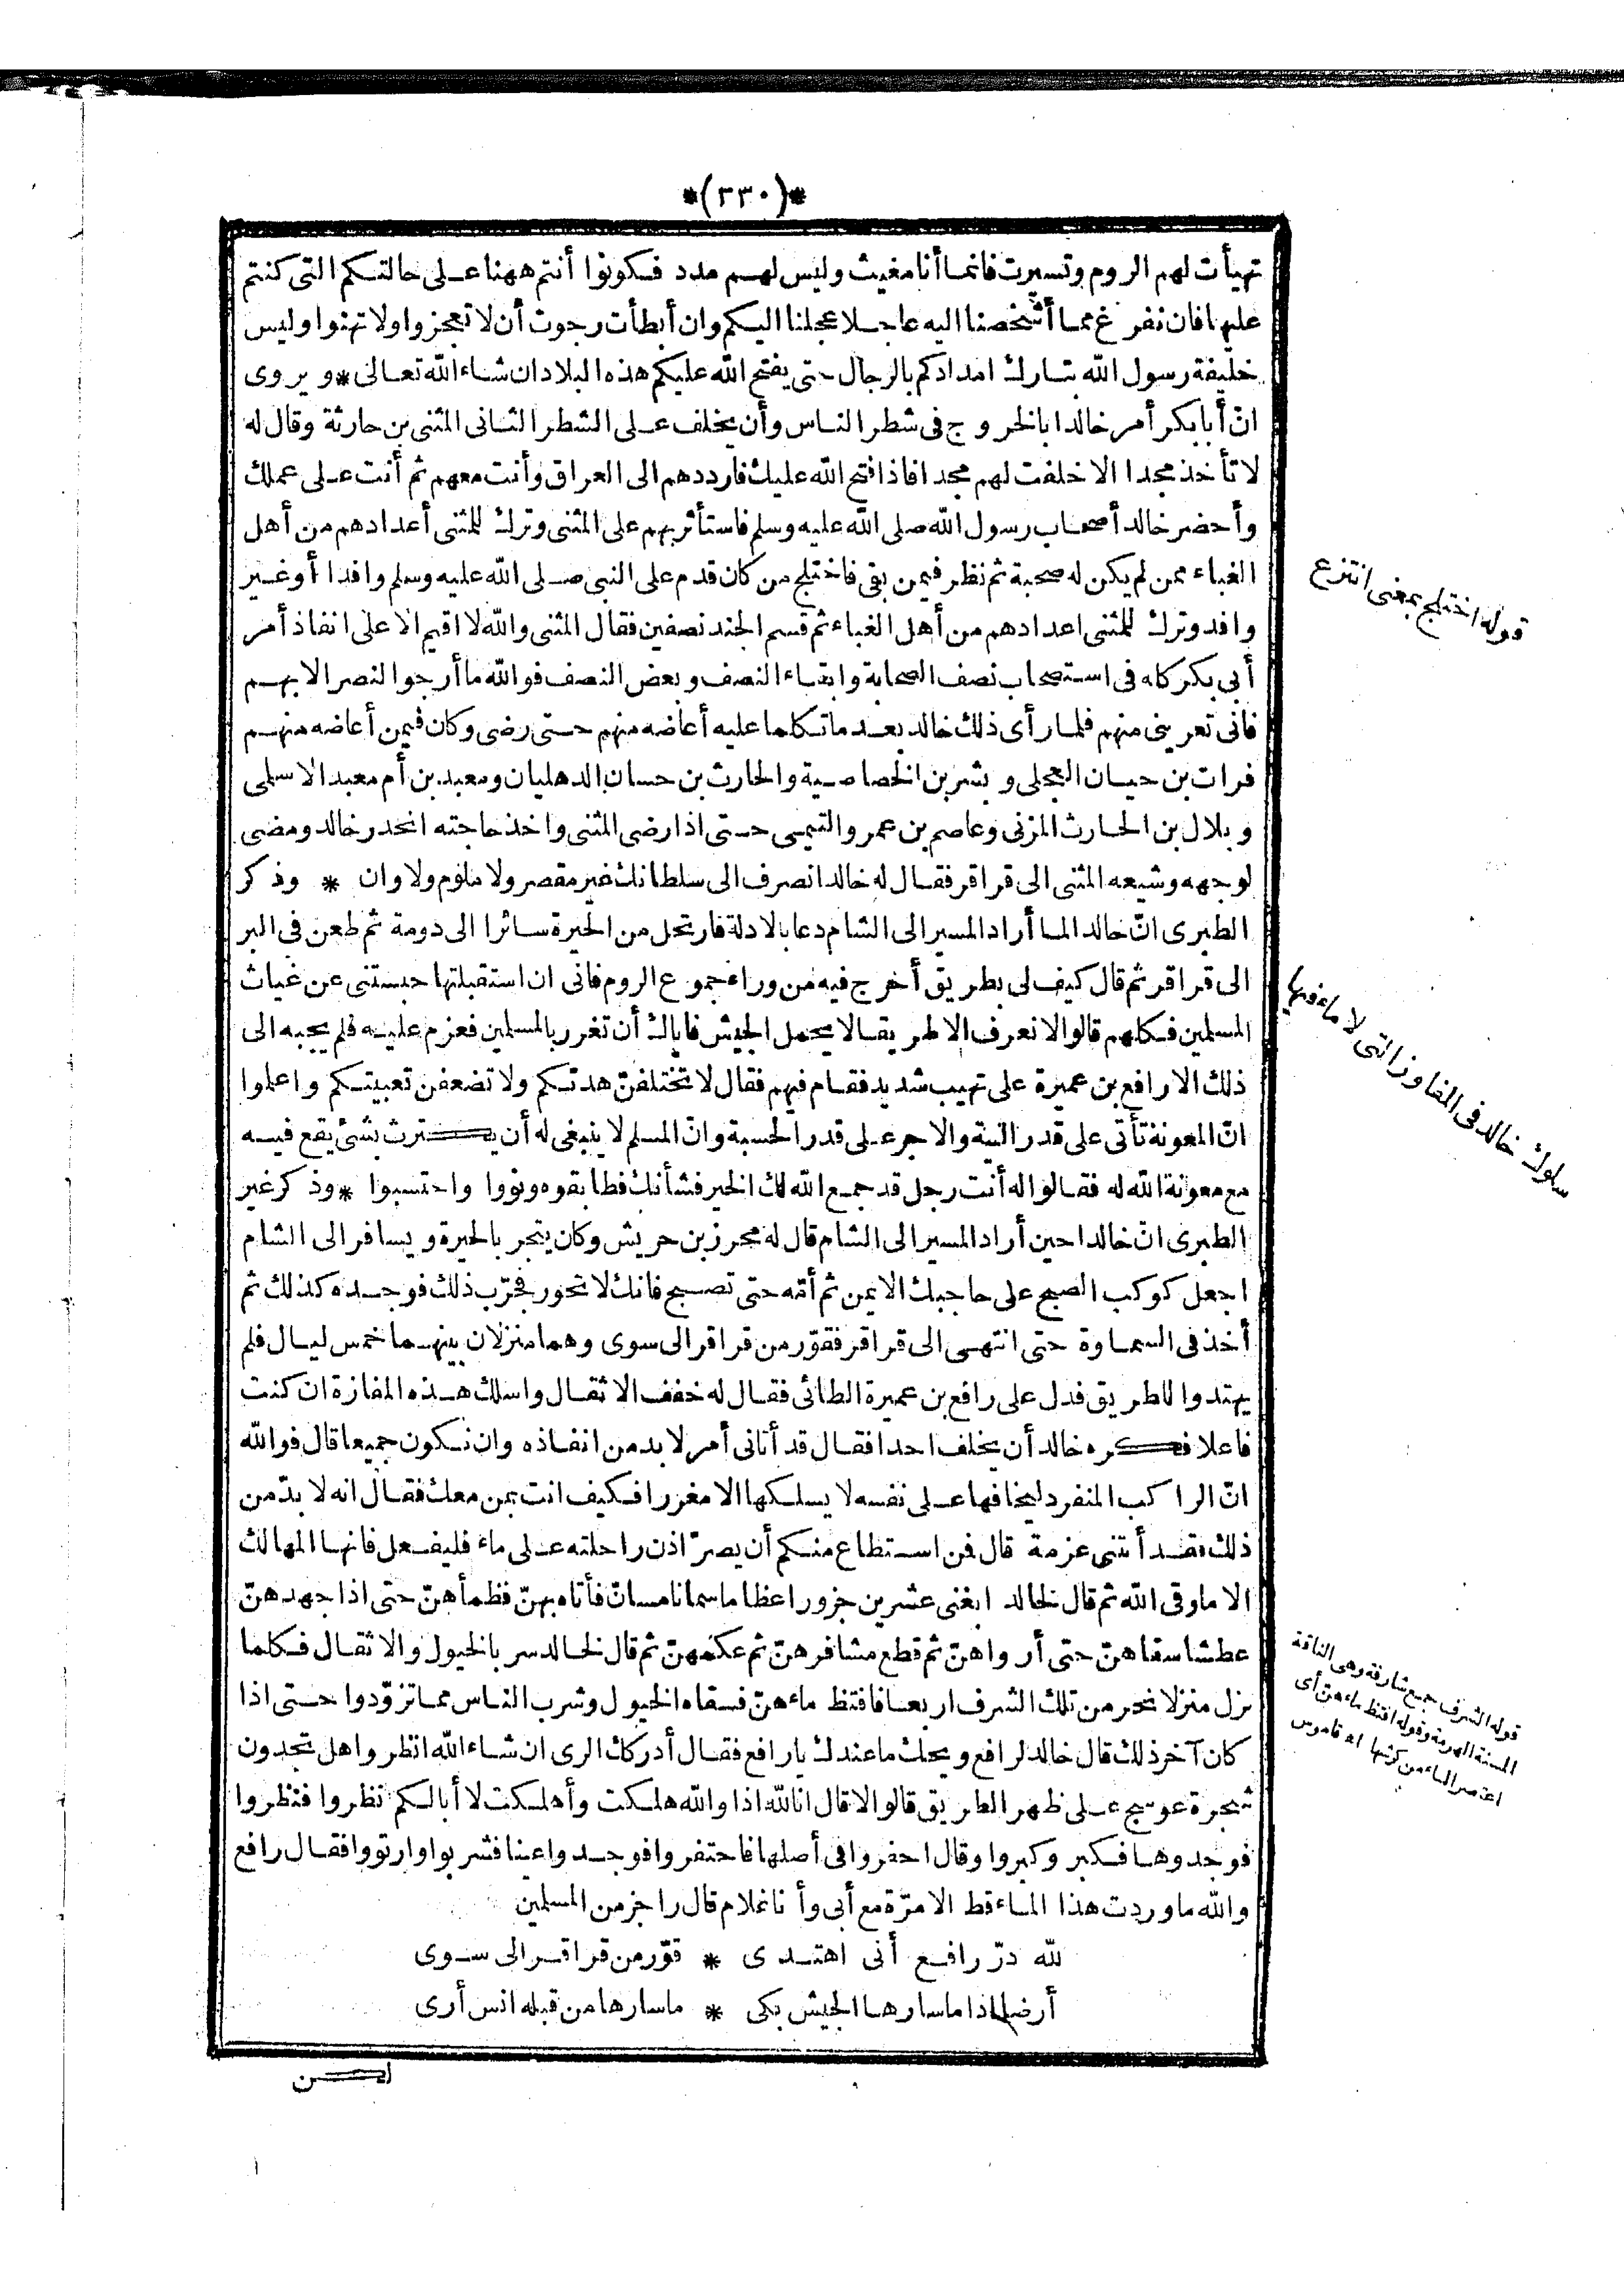 *(٣٣٠)*
تهيأت لهم الروم وتسيرت فانما أنا مغيث وليس لهم مدد فكونوا أنتم ههنا على حالتكم التى كنتم
عليها فان نفرغ مما أشخصنا اليه عاجلا عجلنا اليكم وان أبطأت رجوت أن لا تعجزوا ولا تهنوا وليس
خليفة رسول الله بتارك امدادكم بالرجال حتى يفتح الله عليكم هذه البلاد ان شاء الله تعالى * ويروى
انّ أبا بكر أمر خالدا بالخروج فى شطر الناس وأن يخلف على الشطر الثانى المثنى بن حارثة وقال له
لا تأخذ مجدا الا خلفت لهم مجدا فاذا فتح الله عليك فارددهم الى العراق وأنت معهم ثم أنت على عملك
وأحضر خالد أصحاب رسول الله صلى الله عليه وسلم فاستأثر بهم على المثنى وترك للمثنى أعدادهم من أهل
الغباء ممن لم يكن له صحبة ثم نظر فيمن بقى فاختلج من كان قدم على النبى صلى الله عليه وسلم وافدا أو غير
وافد وترك للمثنى اعدادهم من أهل الغباء ثم قسم الجند نصفين فقال المثنى والله لا اقيم الا على انفاذ أمر
أبى بكر كله فى استصحاب نصف الصحابة وابقاء النصف وبعض النصف فوالله ما أرجو النصر الا بهم
فانى تعرينى منهم فلما رأى ذلك خالد بعد ما تكلما عليه أعاضه منهم حتى رضى وكان فيمن أعاضه منهم
فرات بن حيان العجلى وبشر بن الخصاصية والحارث بن حسان الذهليان ومعبد بن أم معبد الاسلمى
وبلال بن الحارث المزنى وعاصم بن عمرو التيمى حتى اذا رضى المثنى واخذ حاجته انحدر خالد ومضى
لوجهه وشيعه المثنى الى قراقر فقال له خالد انصرف الى سلطانك غير مقصر ولا ملوم ولا وان * وذكر
الطبرى انّ خالدا لما أراد المسير الى الشام دعا بالادلة فارتحل من الحيرة سائرا الى دومة ثم طعن فى البر
الى قراقر ثم قال كيف لى بطريق أخرج فيه من وراء جموع الروم فانى ان استقبلتها حبستنى عن غياث
المسلمين فكلهم قالوا لا نعرف الا طريقا لا يحمل الجيش فاياك أن تغرر بالمسلمين فعزم عليه فلم يجبه الى
ذلك الا رافع بن عميرة على تهيب شديد فقام فيهم فقال لا تختلفنّ هدتكم ولا تضعفن تعبيتكم واعلموا
انّ المعونة تأتى على قدر النية والاجر على قدر الحسبة وانّ المسلم لا ينبغى له أن يكترث بشئ يقع فيه
مع معونة الله له فقالوا له أنت رجل قد جمع الله لك الخير فشأنك فطابقوه ونووا واحتسبوا * وذكر غير
الطبرى انّ خالدا حين أراد المسير الى الشام قال له محرز بن حريش وكان يتجر بالحيرة ويسافر الى الشام
اجعل كوكب الصبح على حاجبك الايمن ثم أمّه حتى تصبح فانك لا تحور فجرّب ذلك فوجده كذلك ثم
أخذ فى السماوة حتى انتهى الى قراقر ففوّر من قراقر الى سوى وهما منزلان بينهما خمس ليال فلم
يهتدوا للطريق فدل على رافع بن عميرة الطائى فقال له خفف الاثقال واسلك هذه المفازة ان كنت
فاعلا فكره خالد أن يخلف احدا فقال قد أتانى أمر لا بد من انفاذه وان نكون جميعا قال فوالله
انّ الراكب المنفرد ليخافها على نفسه لا يسلكها الا مغررا فكيف انت بمن معك فقال انه لا بدّ من
ذلك فقد أتتنى عزمة قال فمن استطاع منكم أن يصرّ اذن راحلته على ماء فليفعل فانها المهالك
الا ما وقى الله ثم قال لخالد ابغنى عشرين جزورا عظاما سمانا مسانّ فأتاه بهنّ فظمأهنّ حتى اذا جهدهنّ
عطشا سقاهنّ حتى أرواهنّ ثم قطع مشافرهنّ ثم عكمهنّ ثم قال لخالد سر بالخيول والاثقال فكلما
نزل منزلا نحر من تلك الشرف اربعا فافتظ ماءهنّ فسقاه الخيول وشرب الناس مما تزوّدوا حتى اذا
كان آخر ذلك قال خالد لرافع ويحك ما عندك يا رافع فقال أدركك الرى ان شاء الله انظروا هل تجدون
شجرة عوسج على ظهر الطريق قالوا لا قال انا لله اذا والله هلكت وأهلكت لا أبا لكم نظروا فنظروا
فوجدوها فكبر وكبروا وقال احفروا فى أصلها فاحتفروا فوجدوا عينا فشربوا وارتووا فقال رافع
والله ما وردت هذا الماء قط الا مرّة مع أبى وأنا غلام قال راجز من المسلمين
لله درّ رافع أنى اهتدى * فوّر من قراقر الى سوى
أرضا اذا ما سارها الجيش بكى * ما سارها من قبله انس أرى
لكن
قوله اختلج بمعنى انتزع
سلوك خالد فى المفاوز التى لا ماء فيها
قوله الشرف جمع شارفة وهى الناقة
المسنة الهرمة وقوله افتظ ماءهن أى
اعتصر الماء من كرشها اه قاموس